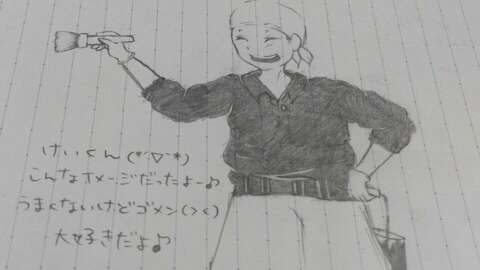 けいくん(*´▽`*)
こんなイメージだったよー♪
うまくないけどゴメン(><)
大好きだよ♪